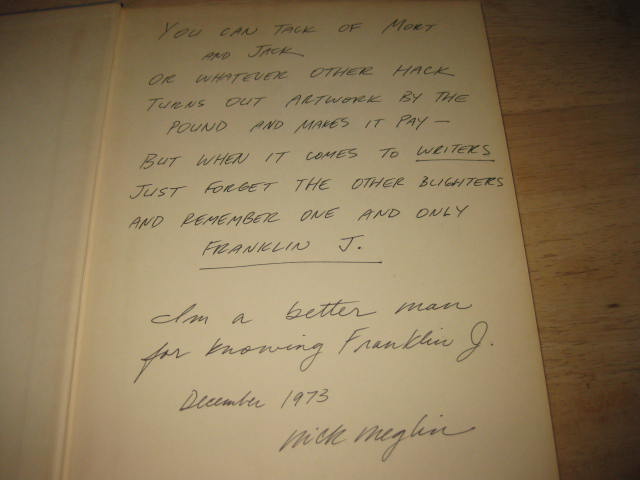 YOU CAN TALK OF MORT
AND JACK
OR WHATEVER OTHER HACK
TURNS OUT ARTWORK BY THE
POUND AND MAKES IT PAY —
BUT WHEN IT COMES TO WRITERS
JUST FORGET THE OTHER BLIGHTERS
AND REMEMBER ONE AND ONLY
FRANKLIN J.
I'm a better man
for knowing Franklin J.
December 1973
Nick Meglin